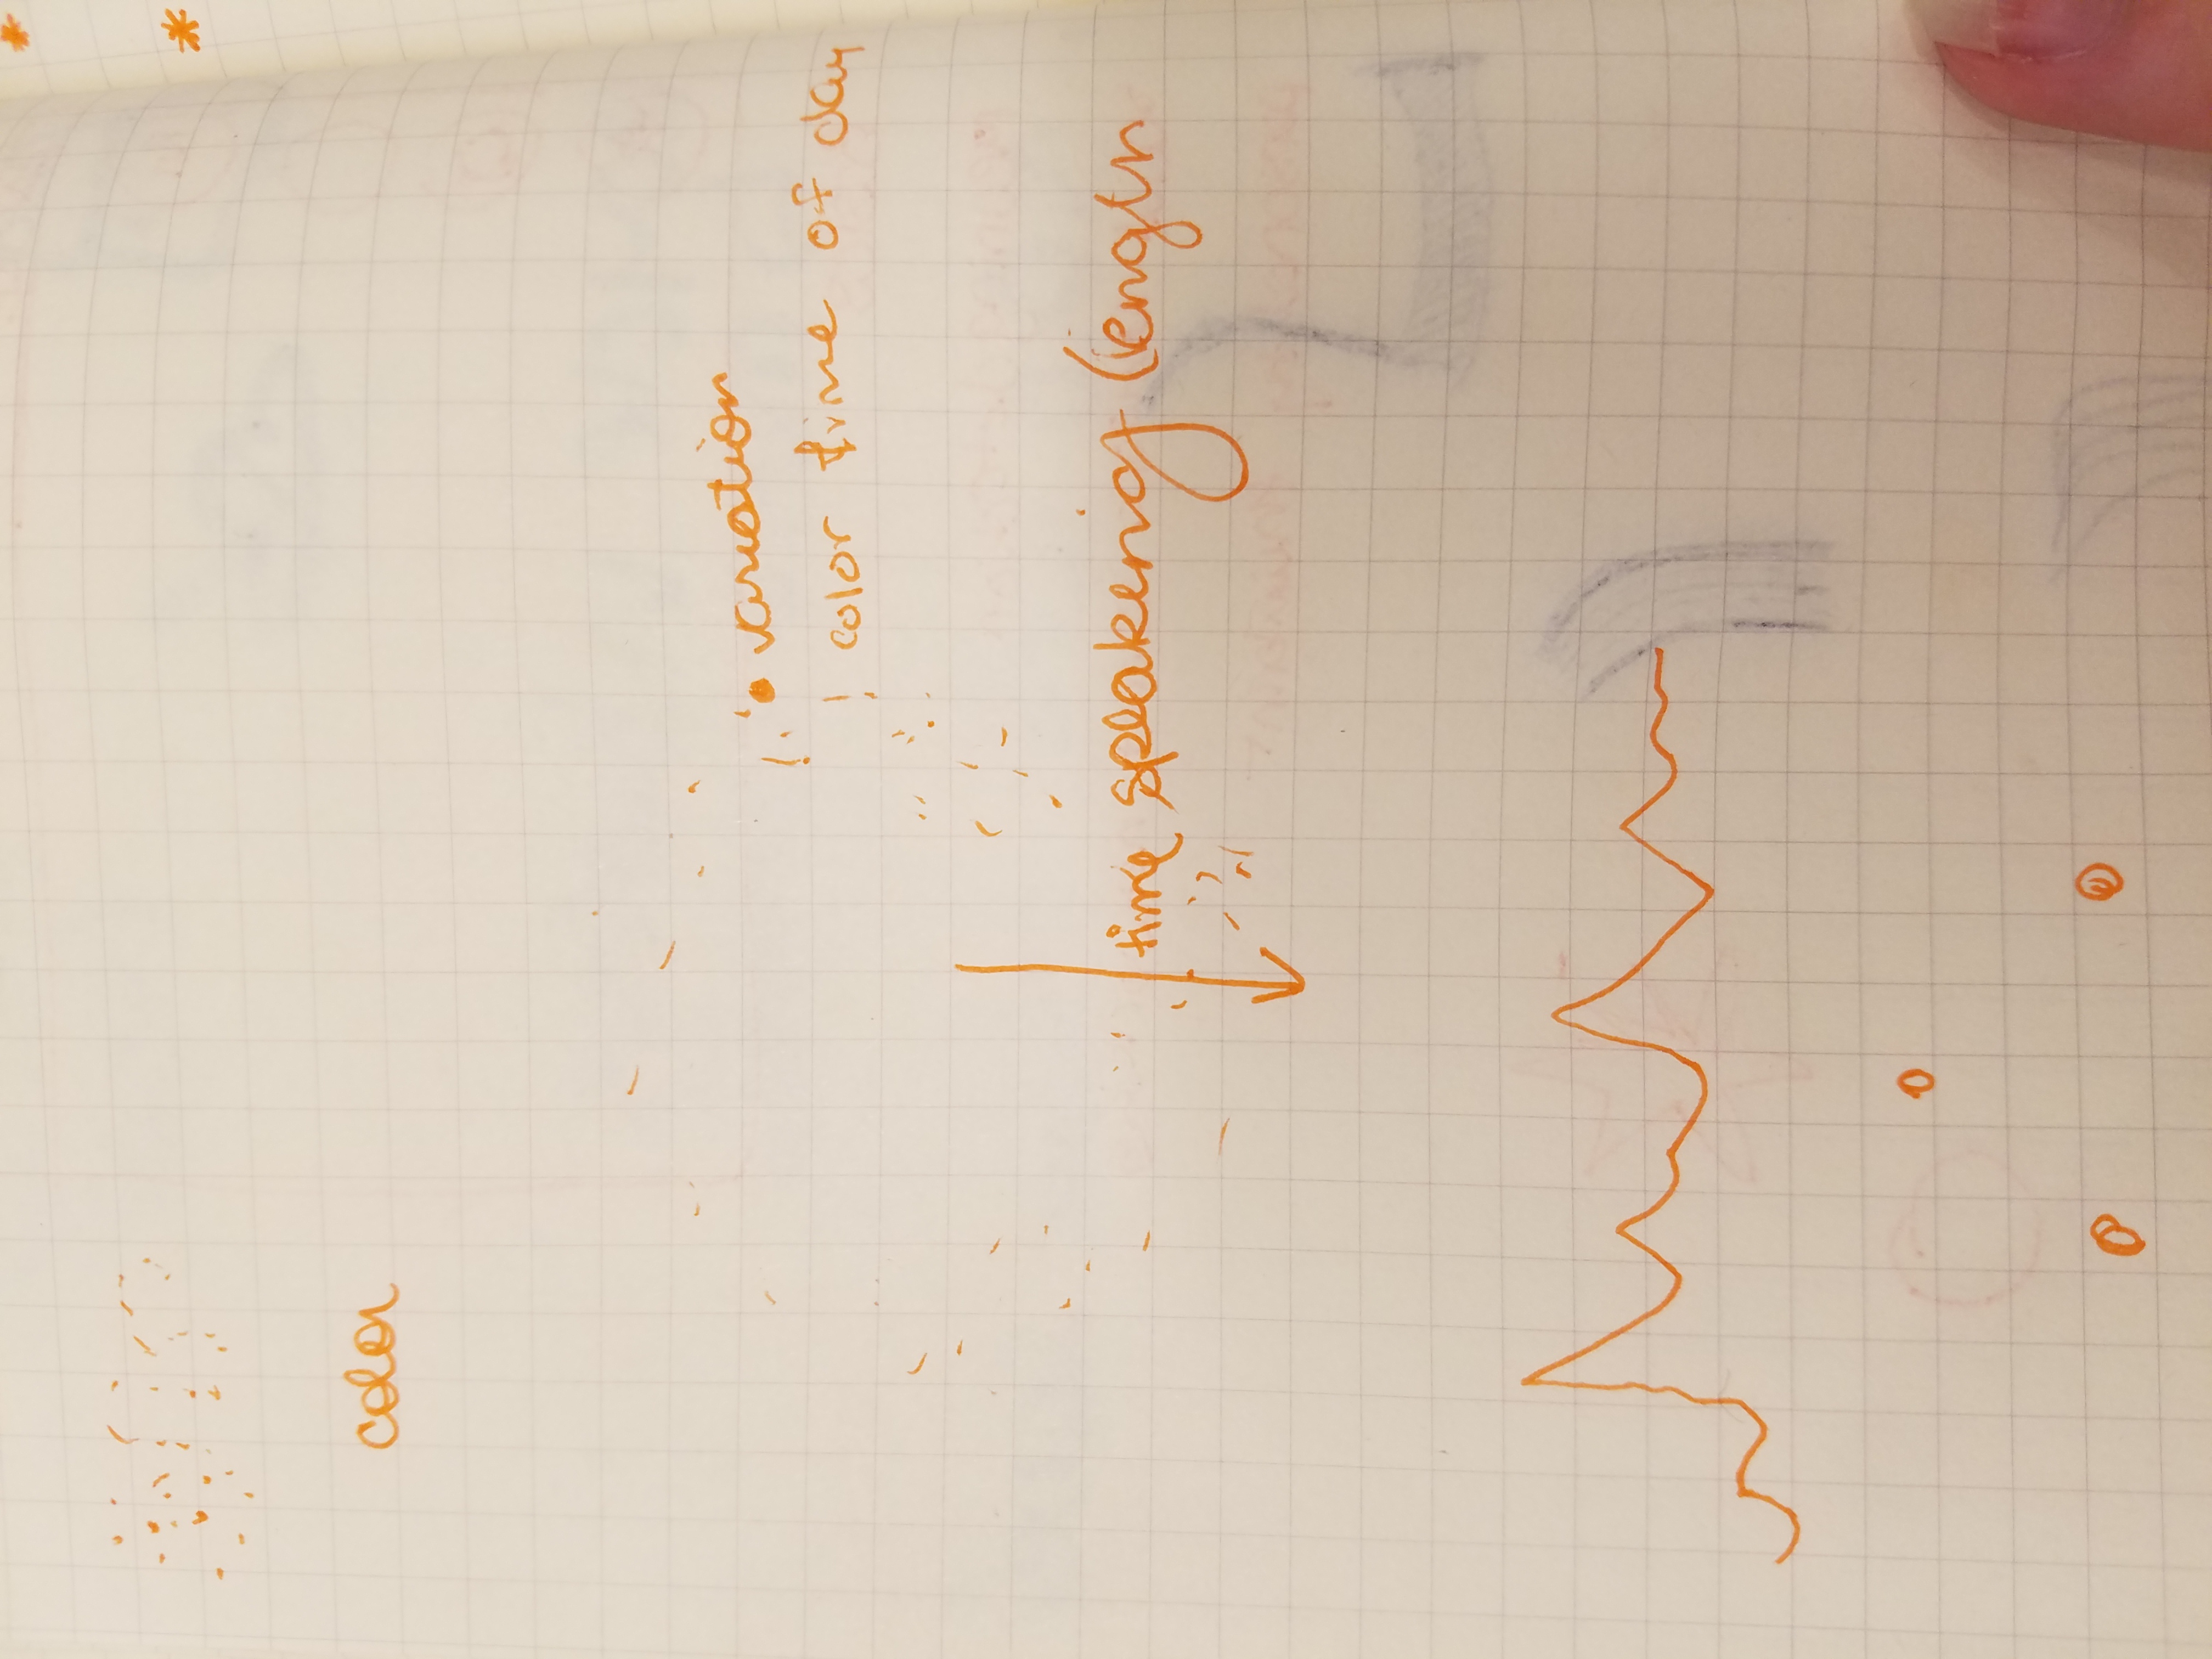 color
variation
color time of day
time speaking (length